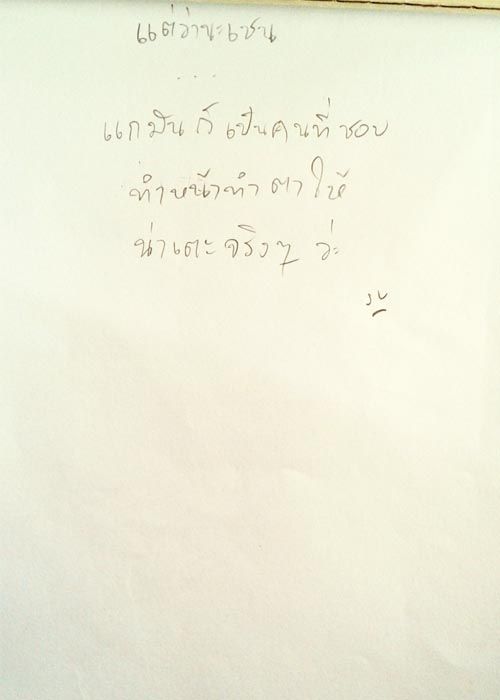 แต่ว่านะเชน
...
แกมันก็เป็นคนที่ชอบ
ทำหน้าทำตาให้
น่าเตะจริงๆ ว่ะ